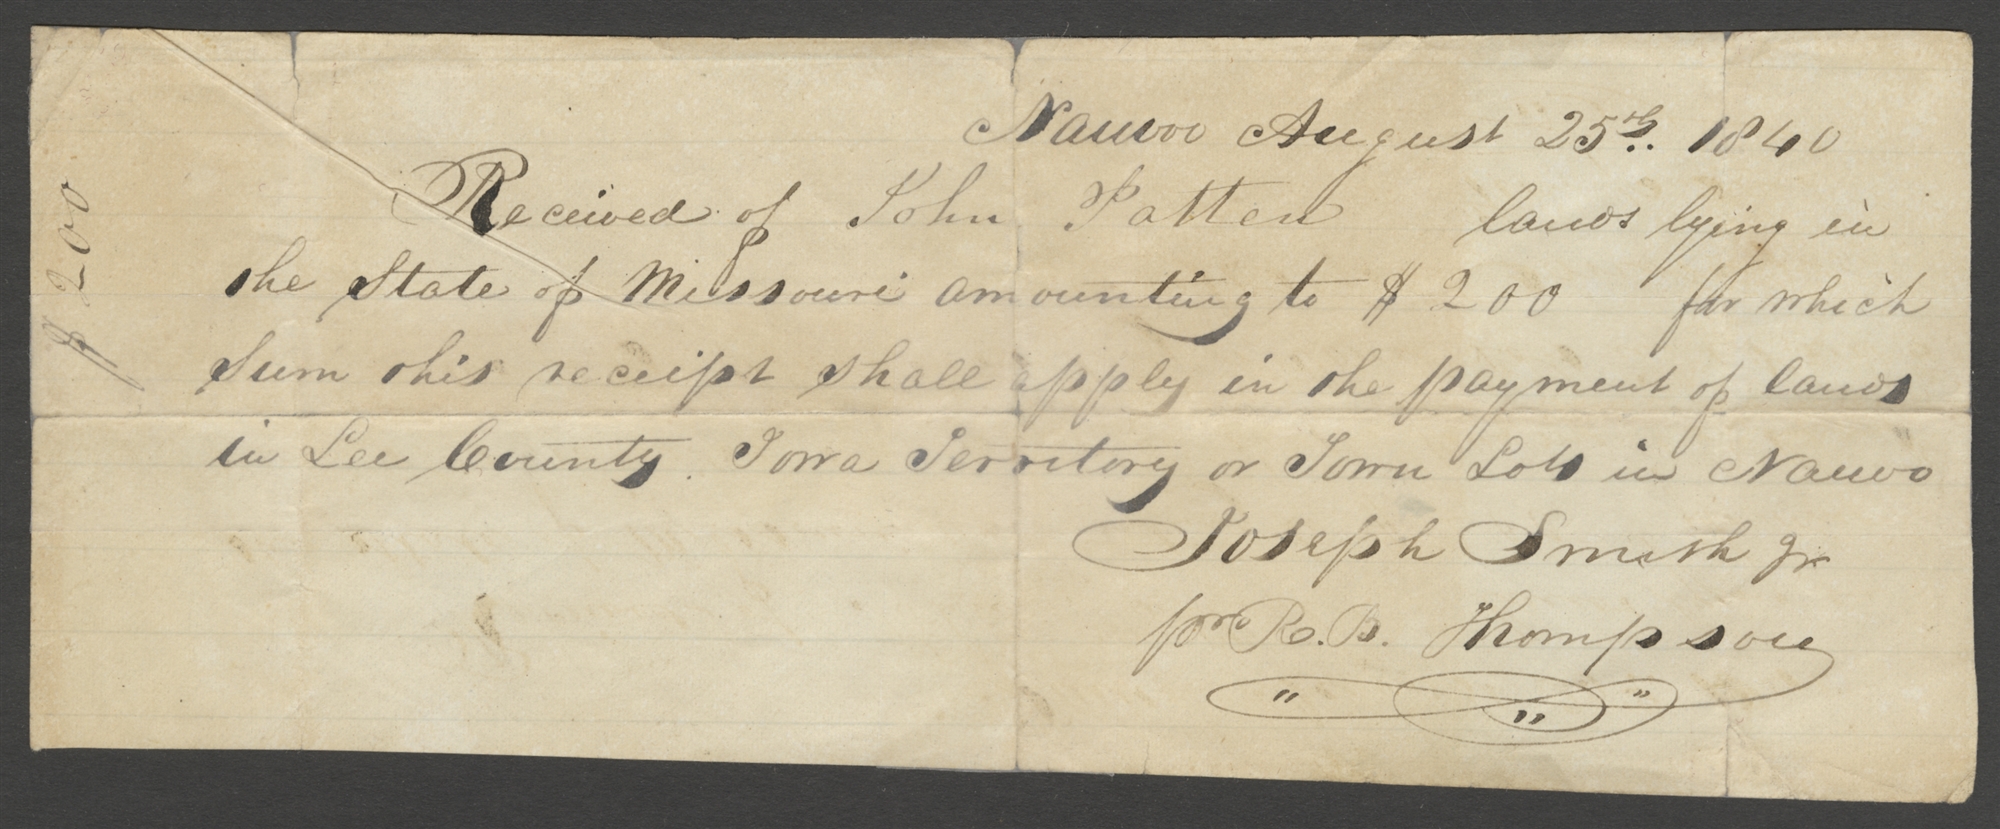 Nauvoo August 25th. 1840
Received of John Patten lands lying in
the State of Missouri amounting to $200 for which
Sum this receipt shall apply in the payment of lands
in Lee County. Iowa Territory or Town Lots in Nauvo
Joseph Smith jr
pr R. B. Thompson
$200